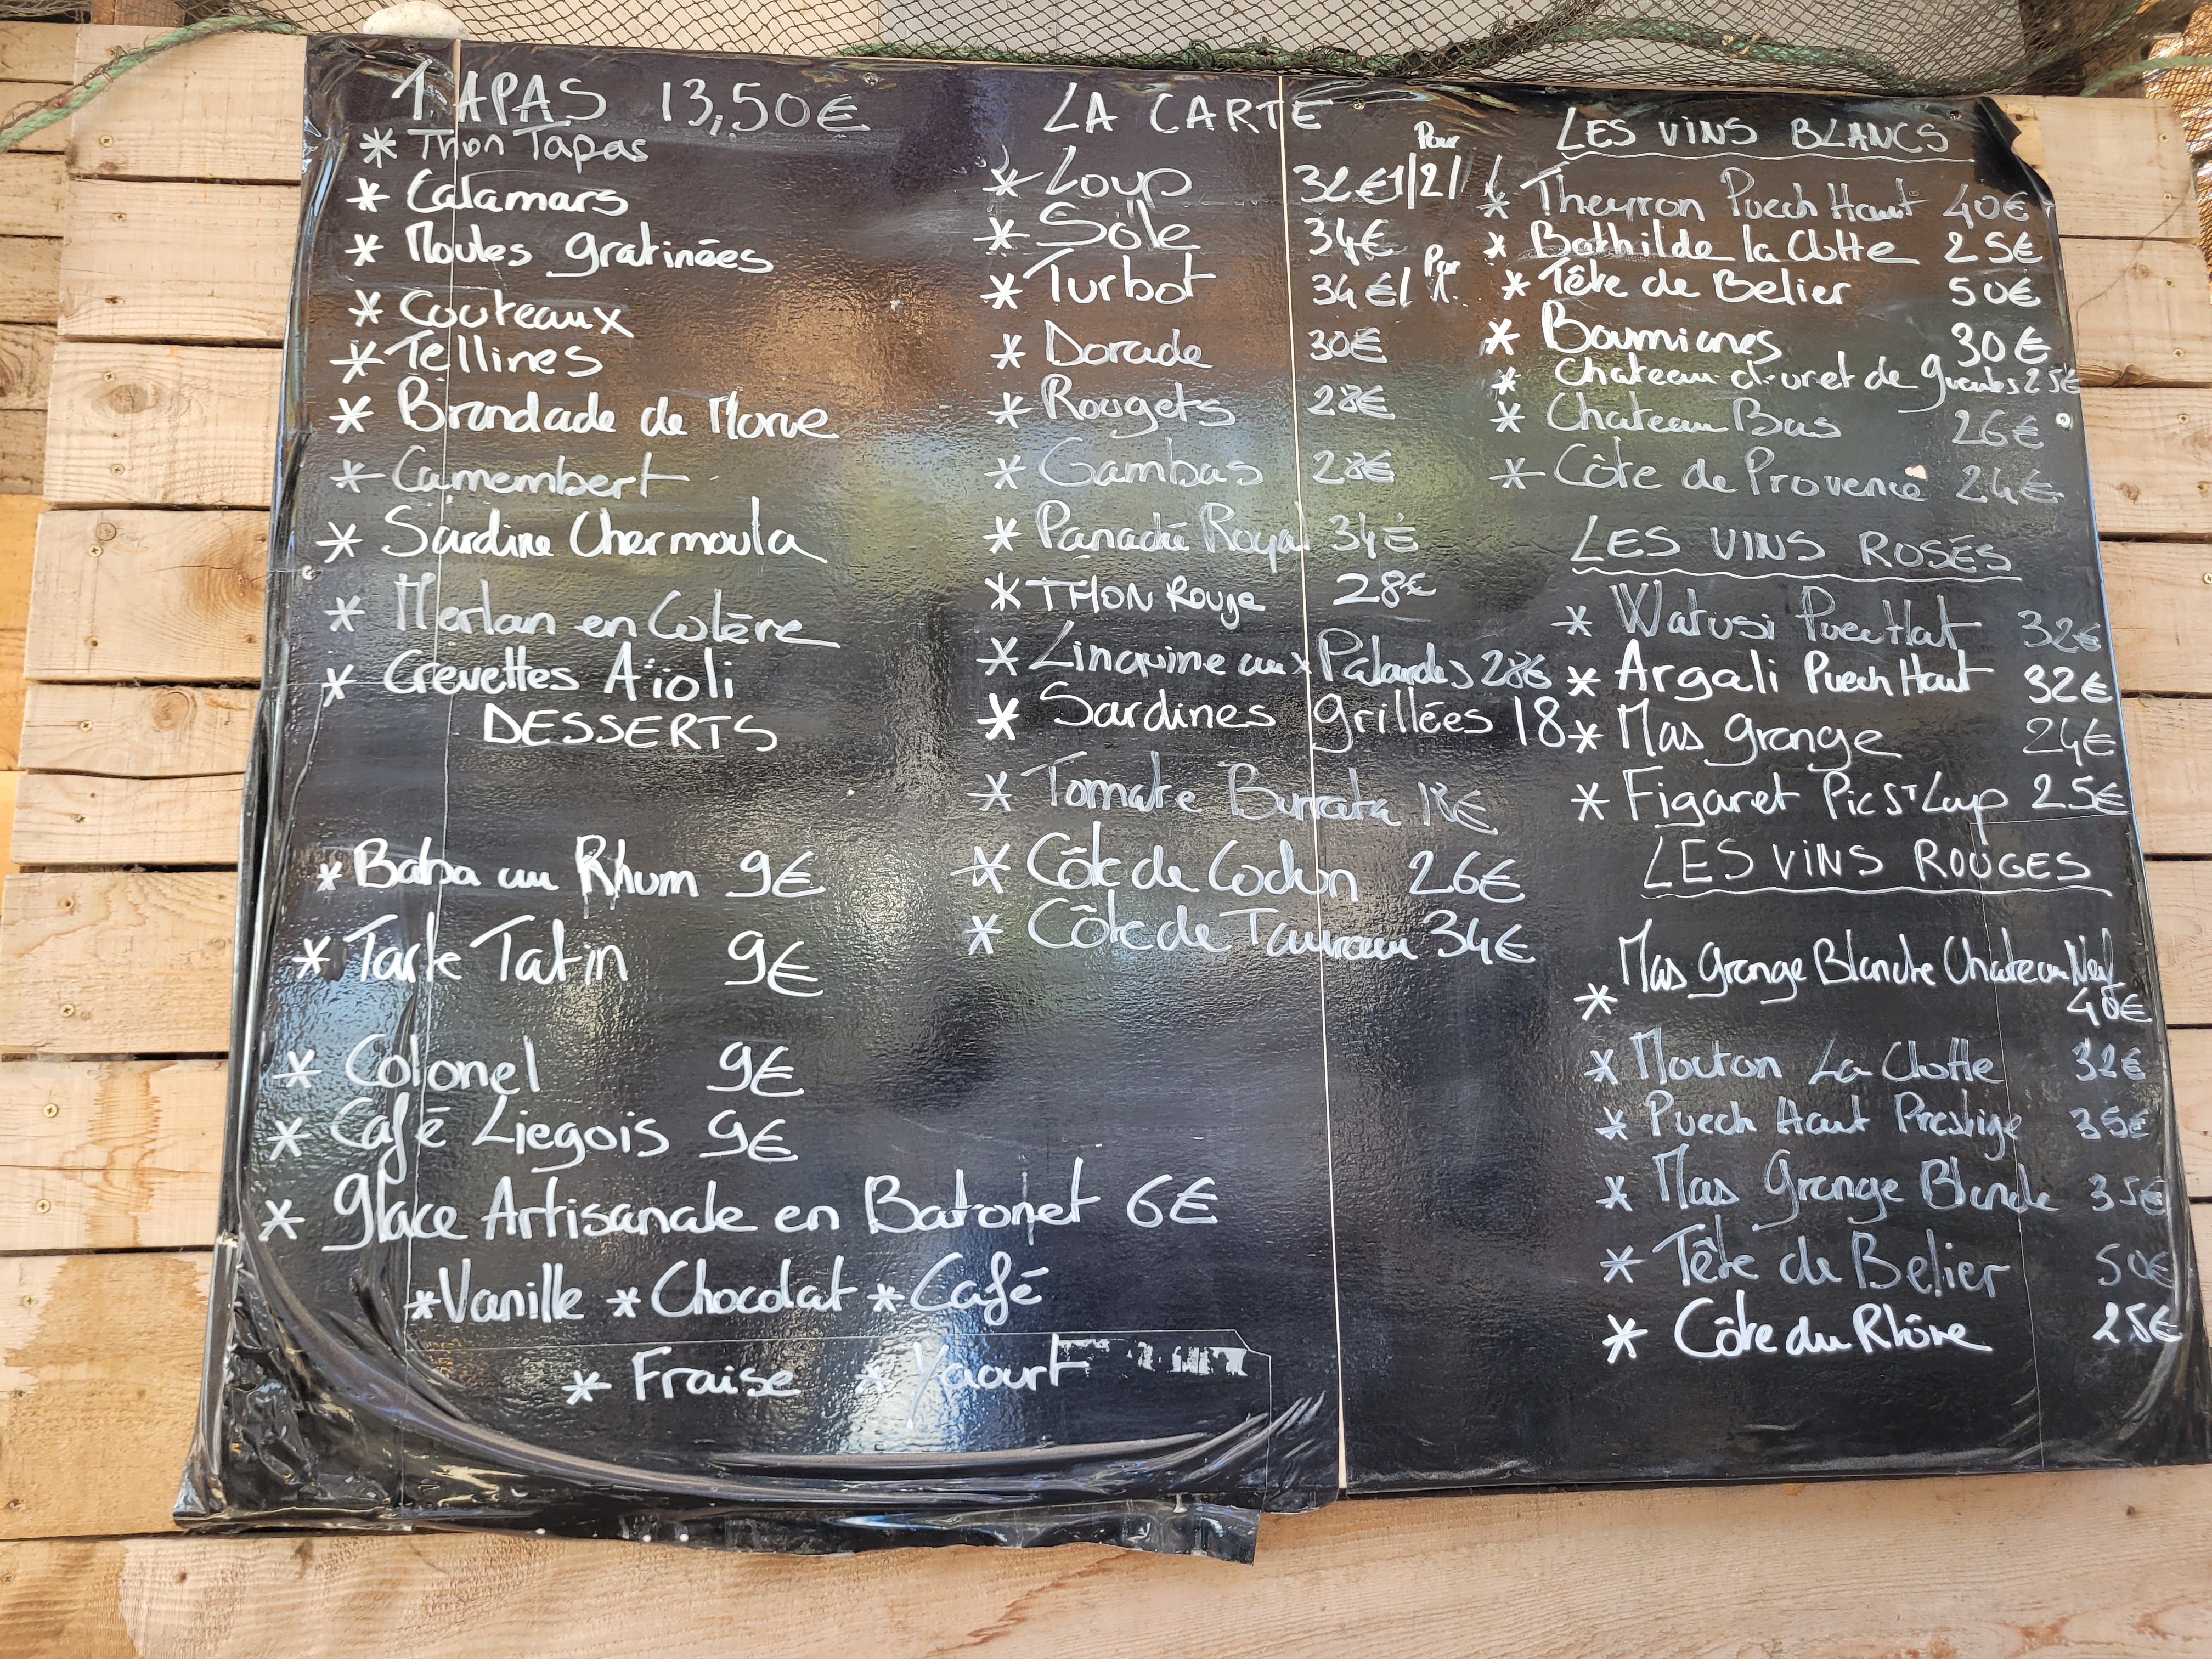 TAPAS 13,50€
* Thon Tapas
* Calamars
* Moules gratinées
* Couteaux
* Tellines
* Brandade de Morue
* Camembert
* Sardine Chermoula
* Merlan en Colère
* Crevettes Aïoli
DESSERTS
* Baba au Rhum 9€
* Tarte Tatin 9€
* Colonel 9€
* Café Liegois 9€
* Glace Artisanale en Batonet 6€
* Vanille * Chocolat * Café
* Fraise * Yaourt
LA CARTE
Pour
* Loup 32€ 1/2/
* Sole 34€
* Turbot 34€/ Par 1.
* Dorade 30€
* Rougets 28€
* Gambas 28€
* Panaché Royal 34€
* THON Rouge 28€
* Linquine aux Palourdes 28€
* Sardines grillées 18
* Tomate Burrata 18€
* Côte de Cochon 26€
* Côte de Taureau 34€
LES VINS BLANCS
* Theyron Puech Haut 40€
* Bathilde la Clotte 25€
* Tête de Belier 50€
* Baumianes 30€
* Chateau d'uret de 25€
* Chateau Bas 26€
* Côte de Provence 24€
LES VINS ROSÉS
* Watusi Puech Hat 32€
* Argali Puech Haut 32€
* Mas grange 24€
* Figaret Pic St Lup 25€
LES VINS ROUGES
* Mas grange Blanche Chateau Neuf
40€
* Mouton La Clotte 32€
* Puech Haut Prestige 35€
* Mas Grange Blande 35€
* Tête de Belier 50€
* Côte du Rhône 25€